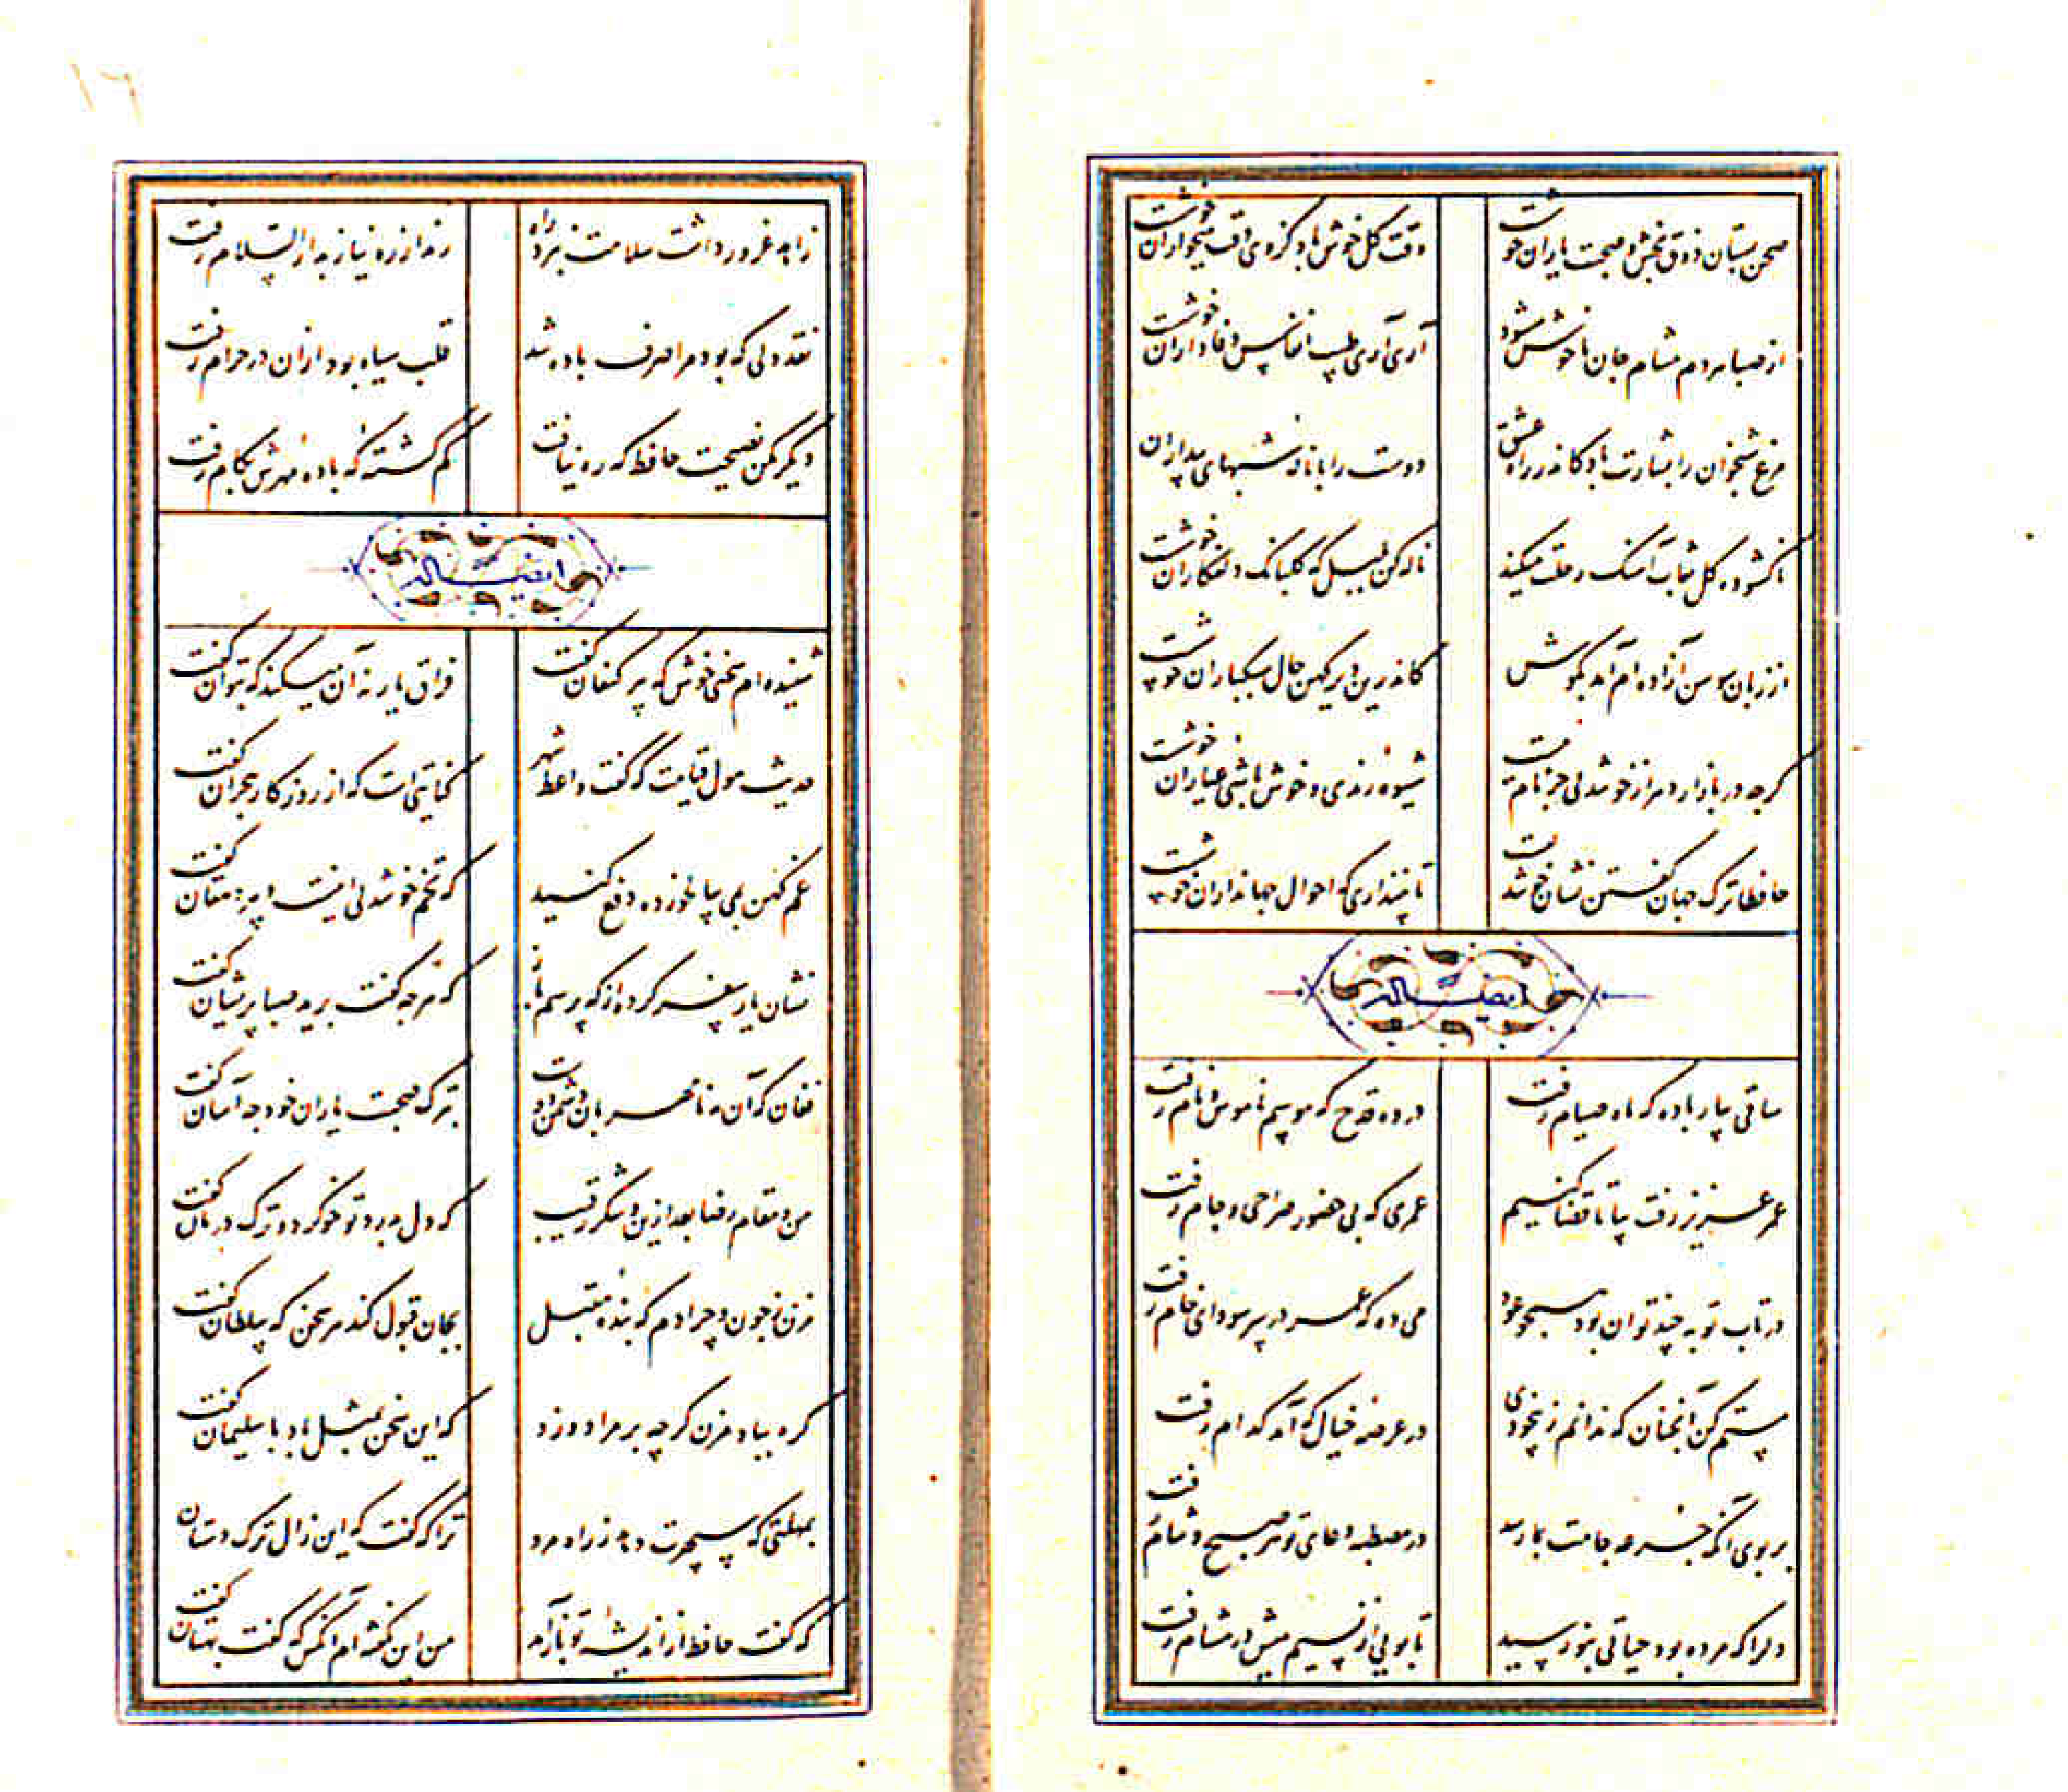 صحن بستان ذوق بخش و صحبت یاران خوشست
وقت گل خوش باد کزوی وقت میخواران خوشست
از صبا هر دم مشام جان ما خوش میشود
آری آری طیب انفاس هواداران خوشست
مرغ شبخوان را بشارت باد کاندر راه عشق
دوست را با ناله شبهای بیداران
ناکشوده گل نقاب آهنگ رحلت میکند
ناله کن بلبل که گلبانگ دلفکاران خوشست
از زبان سوسن آزاده ام آمد بگوش
کاندرین دیر کهن حال سبکباران خوشست
گرچه در بازار دهر از خوشدلی جز نام نیست
شیوه رندی و خوش باشی عیاران خوشست
حافظا ترک جهان گفتن نشان خوشدلیست
تا نپنداری که احوال جهانداران خوشست
ایضاً له
ساقی بیار باده که ماه صیام رفت
در ده قدح که موسم ناموس و نام رفت
عمر عزیز رفت بیا تا قضا کنیم
عمری که بی حضور صراحی و جام رفت
در تاب توبه چند توان بود همچو عود
می ده که عمر در سر سودای خام رفت
مستم کن آنچنان که ندانم ز بیخودی
در عرصه خیال که آمد کدام رفت
بر بوی آنکه جرعه جامت بما رسد
در مصطبه دعای تو هر صبح و شام رفت
دل را که مرده بود حیاتی بنو رسید
تا بویی از نسیم میش در مشام رفت
۱۶
زاهد غرور داشت سلامت نبرد راه
رند از ره نیاز بدار السلام رفت
نقد دلی که بود مرا صرف باده شد
قلب سیاه بود ازان در حرام رفت
دیگر مکن نصیحت حافظ که ره نیافت
گم گشته که باده مهرش بکام رفت
ایضاً له
شنیده ام سخنی خوش که پیر کنعان گفت
فراق یار نه آن میکند که بتوان گفت
حدیث هول قیامت که گفت واعظ شهر
کنایتی است که از روزگار هجران گفت
غم کهن بمی سالخورده دفع کنید
که تخم خوشدلی اینست پیر دهقان گفت
نشان یار سفر کرده از که پرسم باز
که هرچه گفت برید صبا پریشان گفت
فغان که آن مه نامهربان دشمن دوست
بترک صحبت یاران خود چه آسان گفت
من و مقام رضا بعد ازین و شکر رقیب
که دل بدرد تو خو کرد و ترک درمان گفت
مزن ز چون و چرا دم که بنده مقبل
بجان قبول کند هر سخن که سلطان گفت
گره بباد مزن گرچه بر مراد وزد
که این سخن بمثل باد با سلیمان گفت
بمهلتی که سپهرت دهد ز راه مرو
ترا که گفت که این زال ترک دستان
که گفت حافظ از اندیشه تو باز آمد
من این نگفته ام آنکس که گفت بهتان گفت